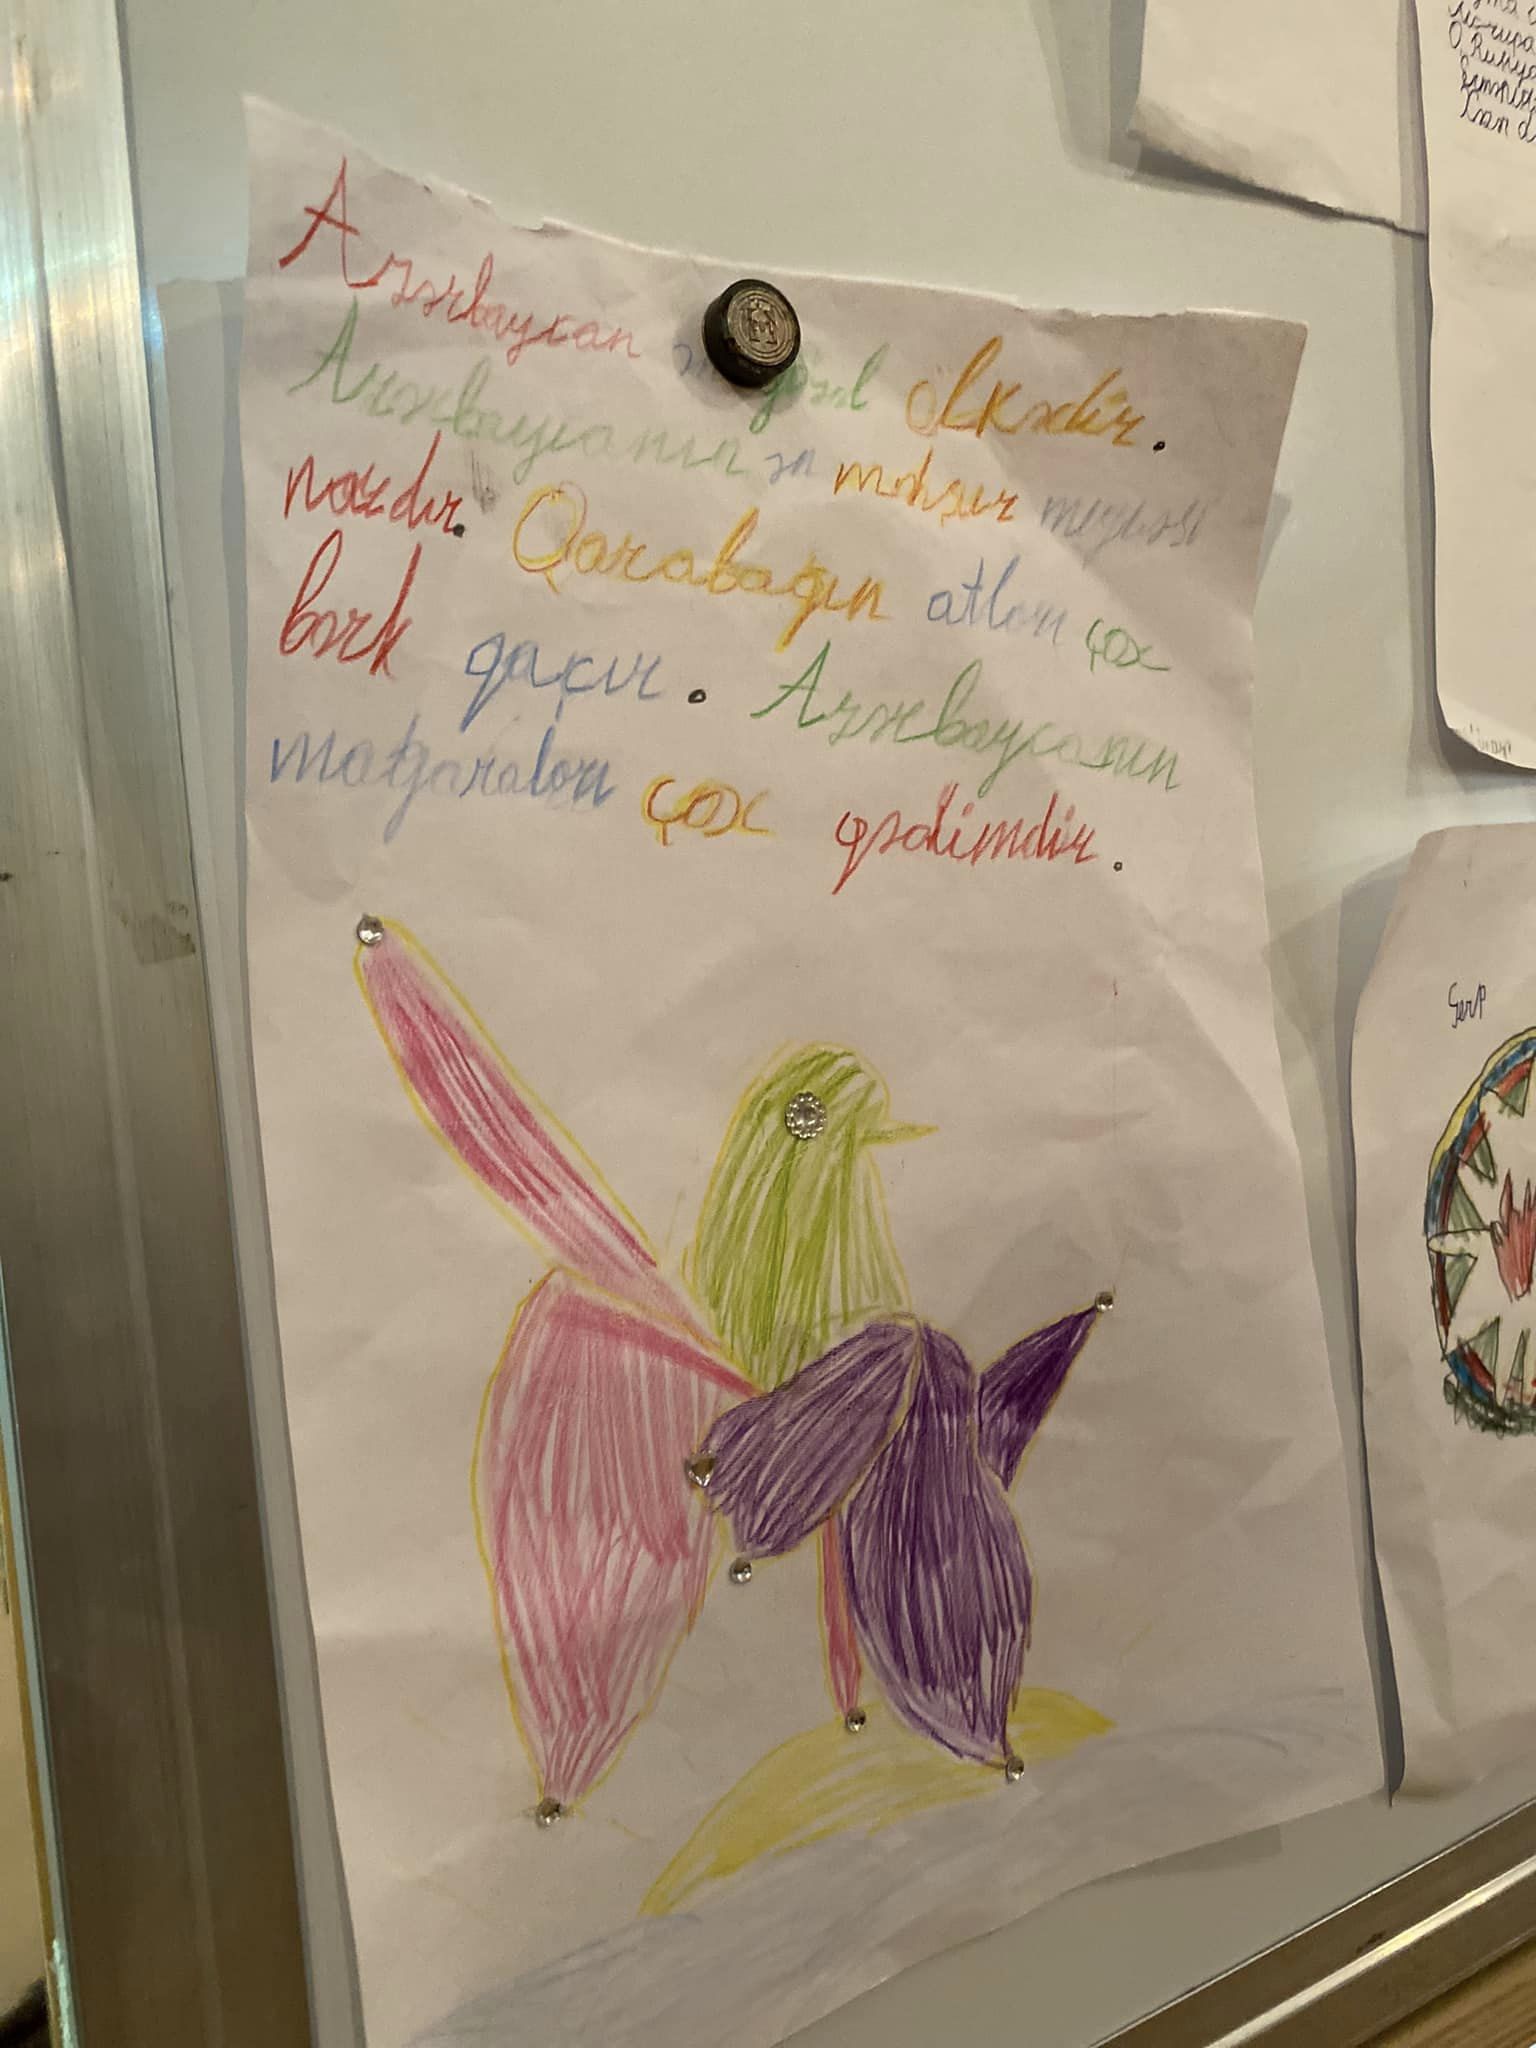 Azərbaycan ən gözəl ölkədir.
Azərbaycanın ən məhşur meyvəsi
nardır. Qarabağın atları çox
bərk qaçır. Azərbaycanın
mağaraları çox qədimdir.
Gerp